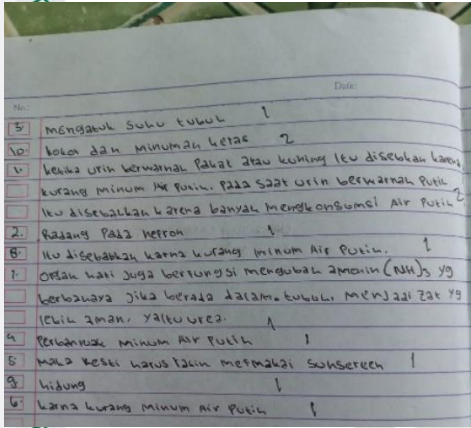 No:
Date:
3. mengatuk Suhu tubuh 1
10. dan Minuman keras 2
ketika urin berwarnah Pakat atau kuning itu disebkan karena
kurang minum Air Putih. Pada saat urin berwarnah Putih
itu disebabkan karena banyak mengkonsumsi Air Putih 2
2. Radang Pada nefron 1
8. itu disebabkan karna kurang minum Air Putih. 1
7. Organ hati Juga berfungsi mengubah amonin (NH)3 yg
berbahaya Jika berada dalam tubuh, menjadi zat yg
lebih aman, yaitu urea. 1
4 Perbanyak minum Air Putih 1
5 maka kesti harus rasin memakai Sunscreen 1
9 hidung 1
6. karna kurang minum Air Putih 1